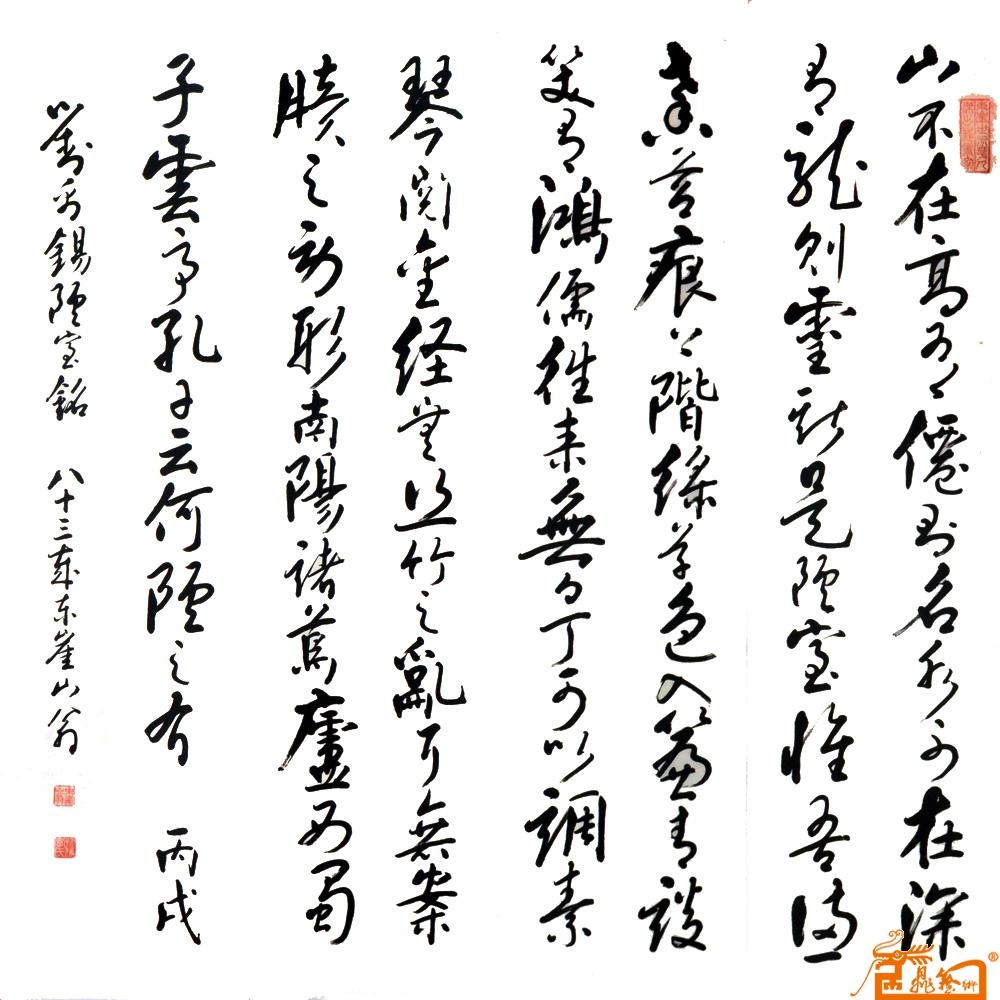 山不在高有僊則名水不在深
有龍則靈斯是陋室惟吾德
馨苔痕上階綠草色入簾青談
笑有鴻儒往来無白丁可以調素
琴閱金経無絲竹之亂耳無案
牘之勞形南陽諸葛廬西蜀
子雲亭孔子云何陋之有 丙戌
劉禹錫陋室銘 八十三歲东崔山翁